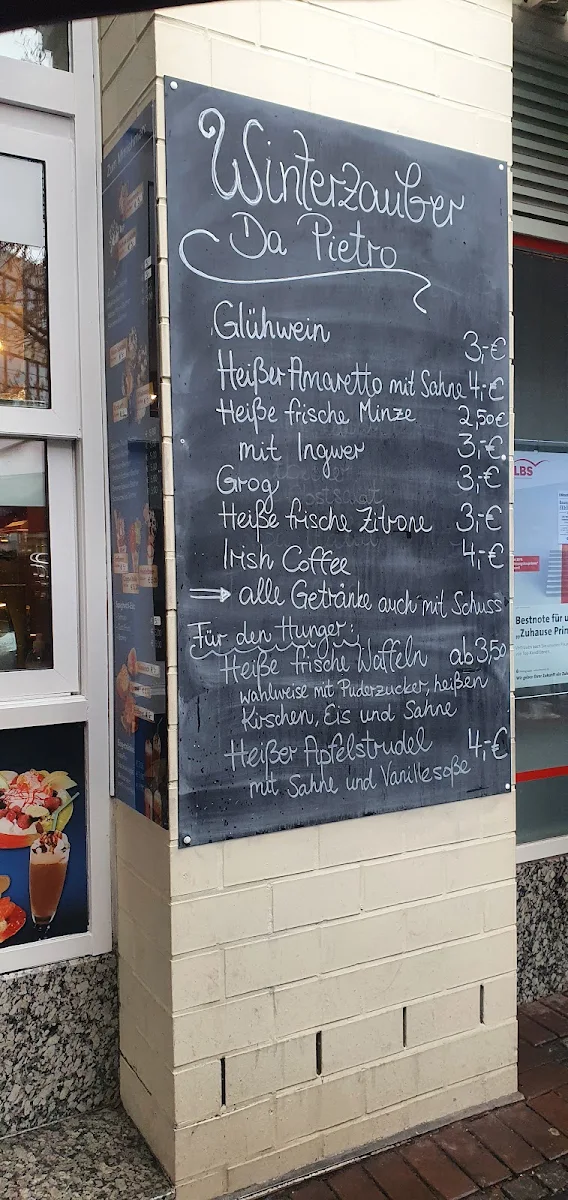 Winterzauber
Da Pietro
Glühwein 3,-€
Heißer Amaretto mit Sahne 4,-€
Heiße frische Minze 2,50€
mit Ingwer 3,-€.
Grog 3,-€
Heiße frische Zitrone 3,-€
Irish Coffee 4,-€
⇒ alle Getränke auch mit Schuss
Für den Hunger:
Heiße frische Waffeln ab 3,50
wahlweise mit Puderzucker, heißen
Kirschen, Eis und Sahne
Heißer Apfelstrudel 4,-€
mit Sahne und Vanillesoße
LBS
Bestnote für u
„Zuhause Prin